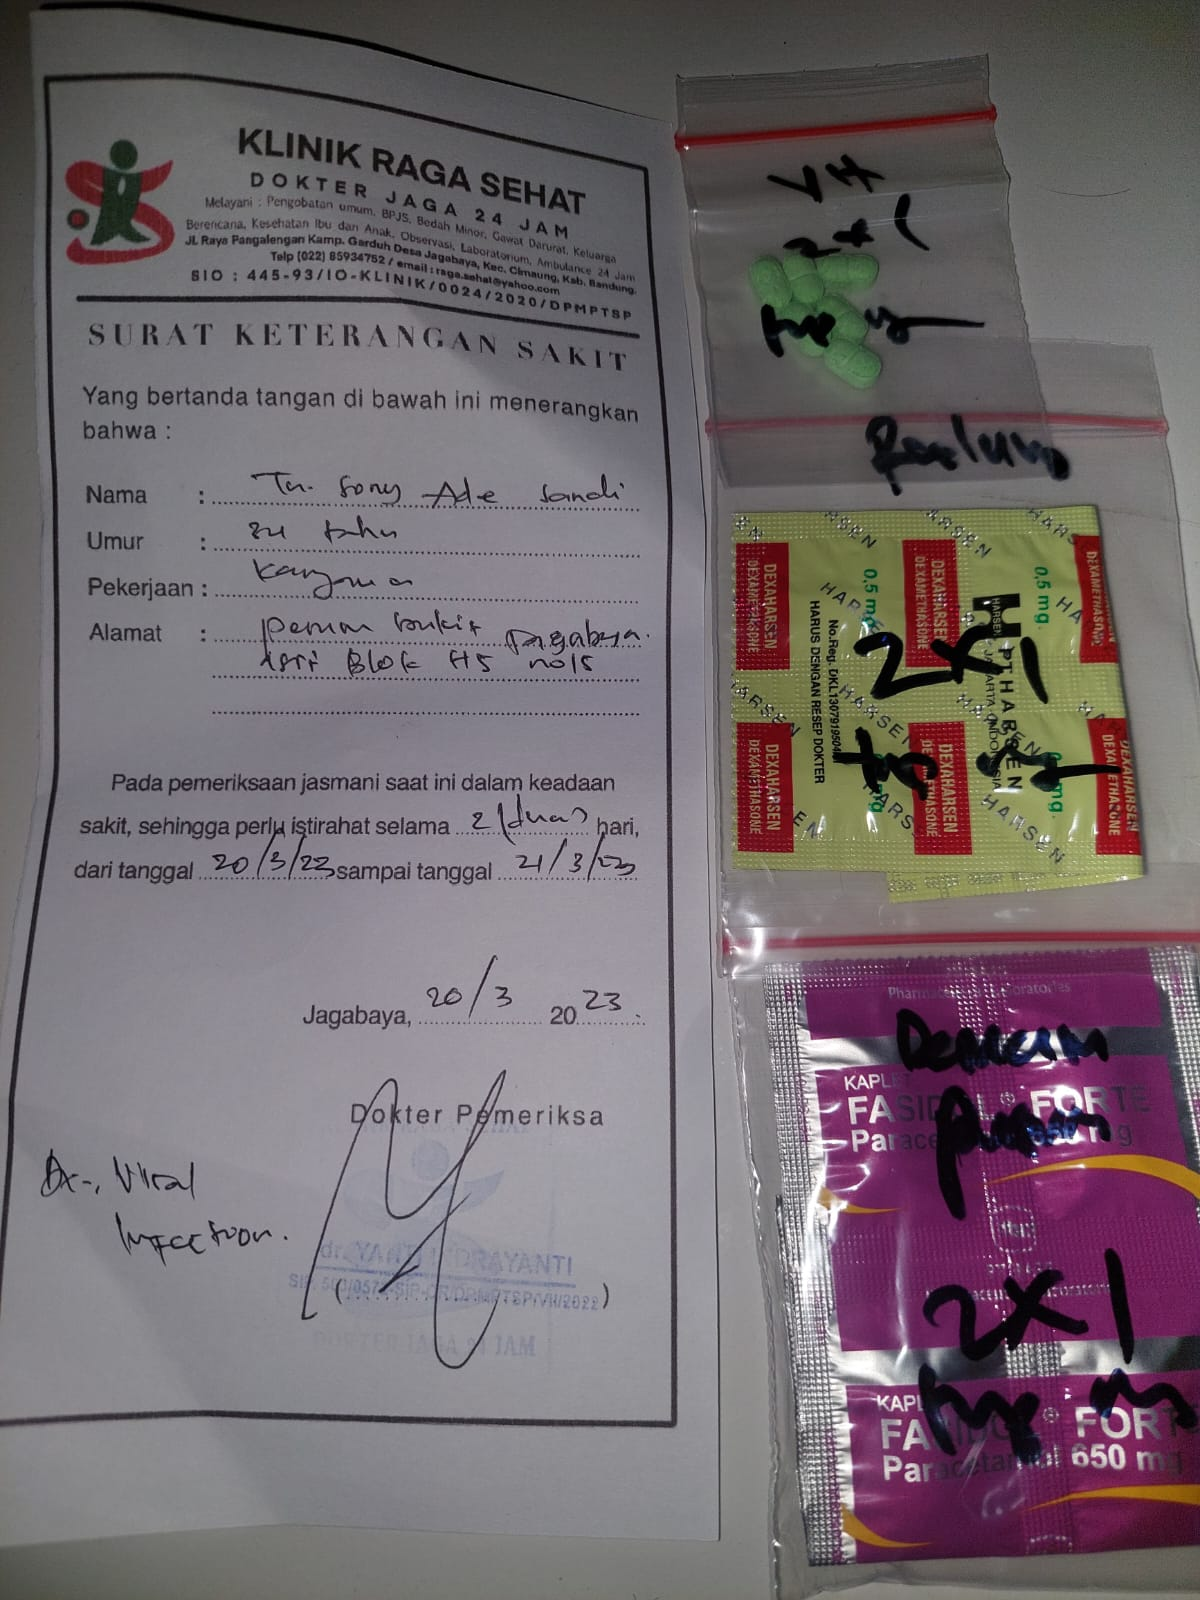 KLINIK RAGA SEHAT
DOKTER JAGA 24 JAM
Melayani : Pengobatan umum, BPJS, Bedah Minor, Gawat Darurat, Keluarga
Berencana, Kesehatan Ibu dan Anak, Observasi, Laboratorium, Ambulance 24 Jam
Jl. Raya Pangalengan Kamp. Garduh Desa Jagabaya, Kec. Cimaung, Kab. Bandung.
Telp (022) 85934752 / email : raga.sehat@yahoo.com
SIO : 445-93/IO-KLINIK/0024/2020/DPMPTSP
SURAT KETERANGAN SAKIT
Yang bertanda tangan di bawah ini menerangkan
bahwa :
Nama : Tn. Sony Ade Sandi
Umur : 34 tahun
Pekerjaan : Karyawan
Alamat : perum bukit Jagabaya
Blok H5 no15
Pada pemeriksaan jasmani saat ini dalam keadaan
sakit, sehingga perlu istirahat selama 2 (dua) hari,
dari tanggal 20/3/23 sampai tanggal 21/3/23
Jagabaya, 20/3 2023
Dokter Pemeriksa
Dx : Viral
Infection.
dr. YANTI INDRAYANTI
DOKTER JAGA 24 JAM
2x1
HARSEN
DEXAHARSEN
DEXAMETHASONE
0,5 mg
No.Reg. DKL1307919504
HARUS DENGAN RESEP DOKTER
PT HARSEN
HARSEN JAKARTA INDONESIA
2x1
Demam
KAPLET
FASIDOL® FORTE
Paracetamol 650 mg
2x1
KAPLET
FASIDOL® FORTE
Paracetamol 650 mg